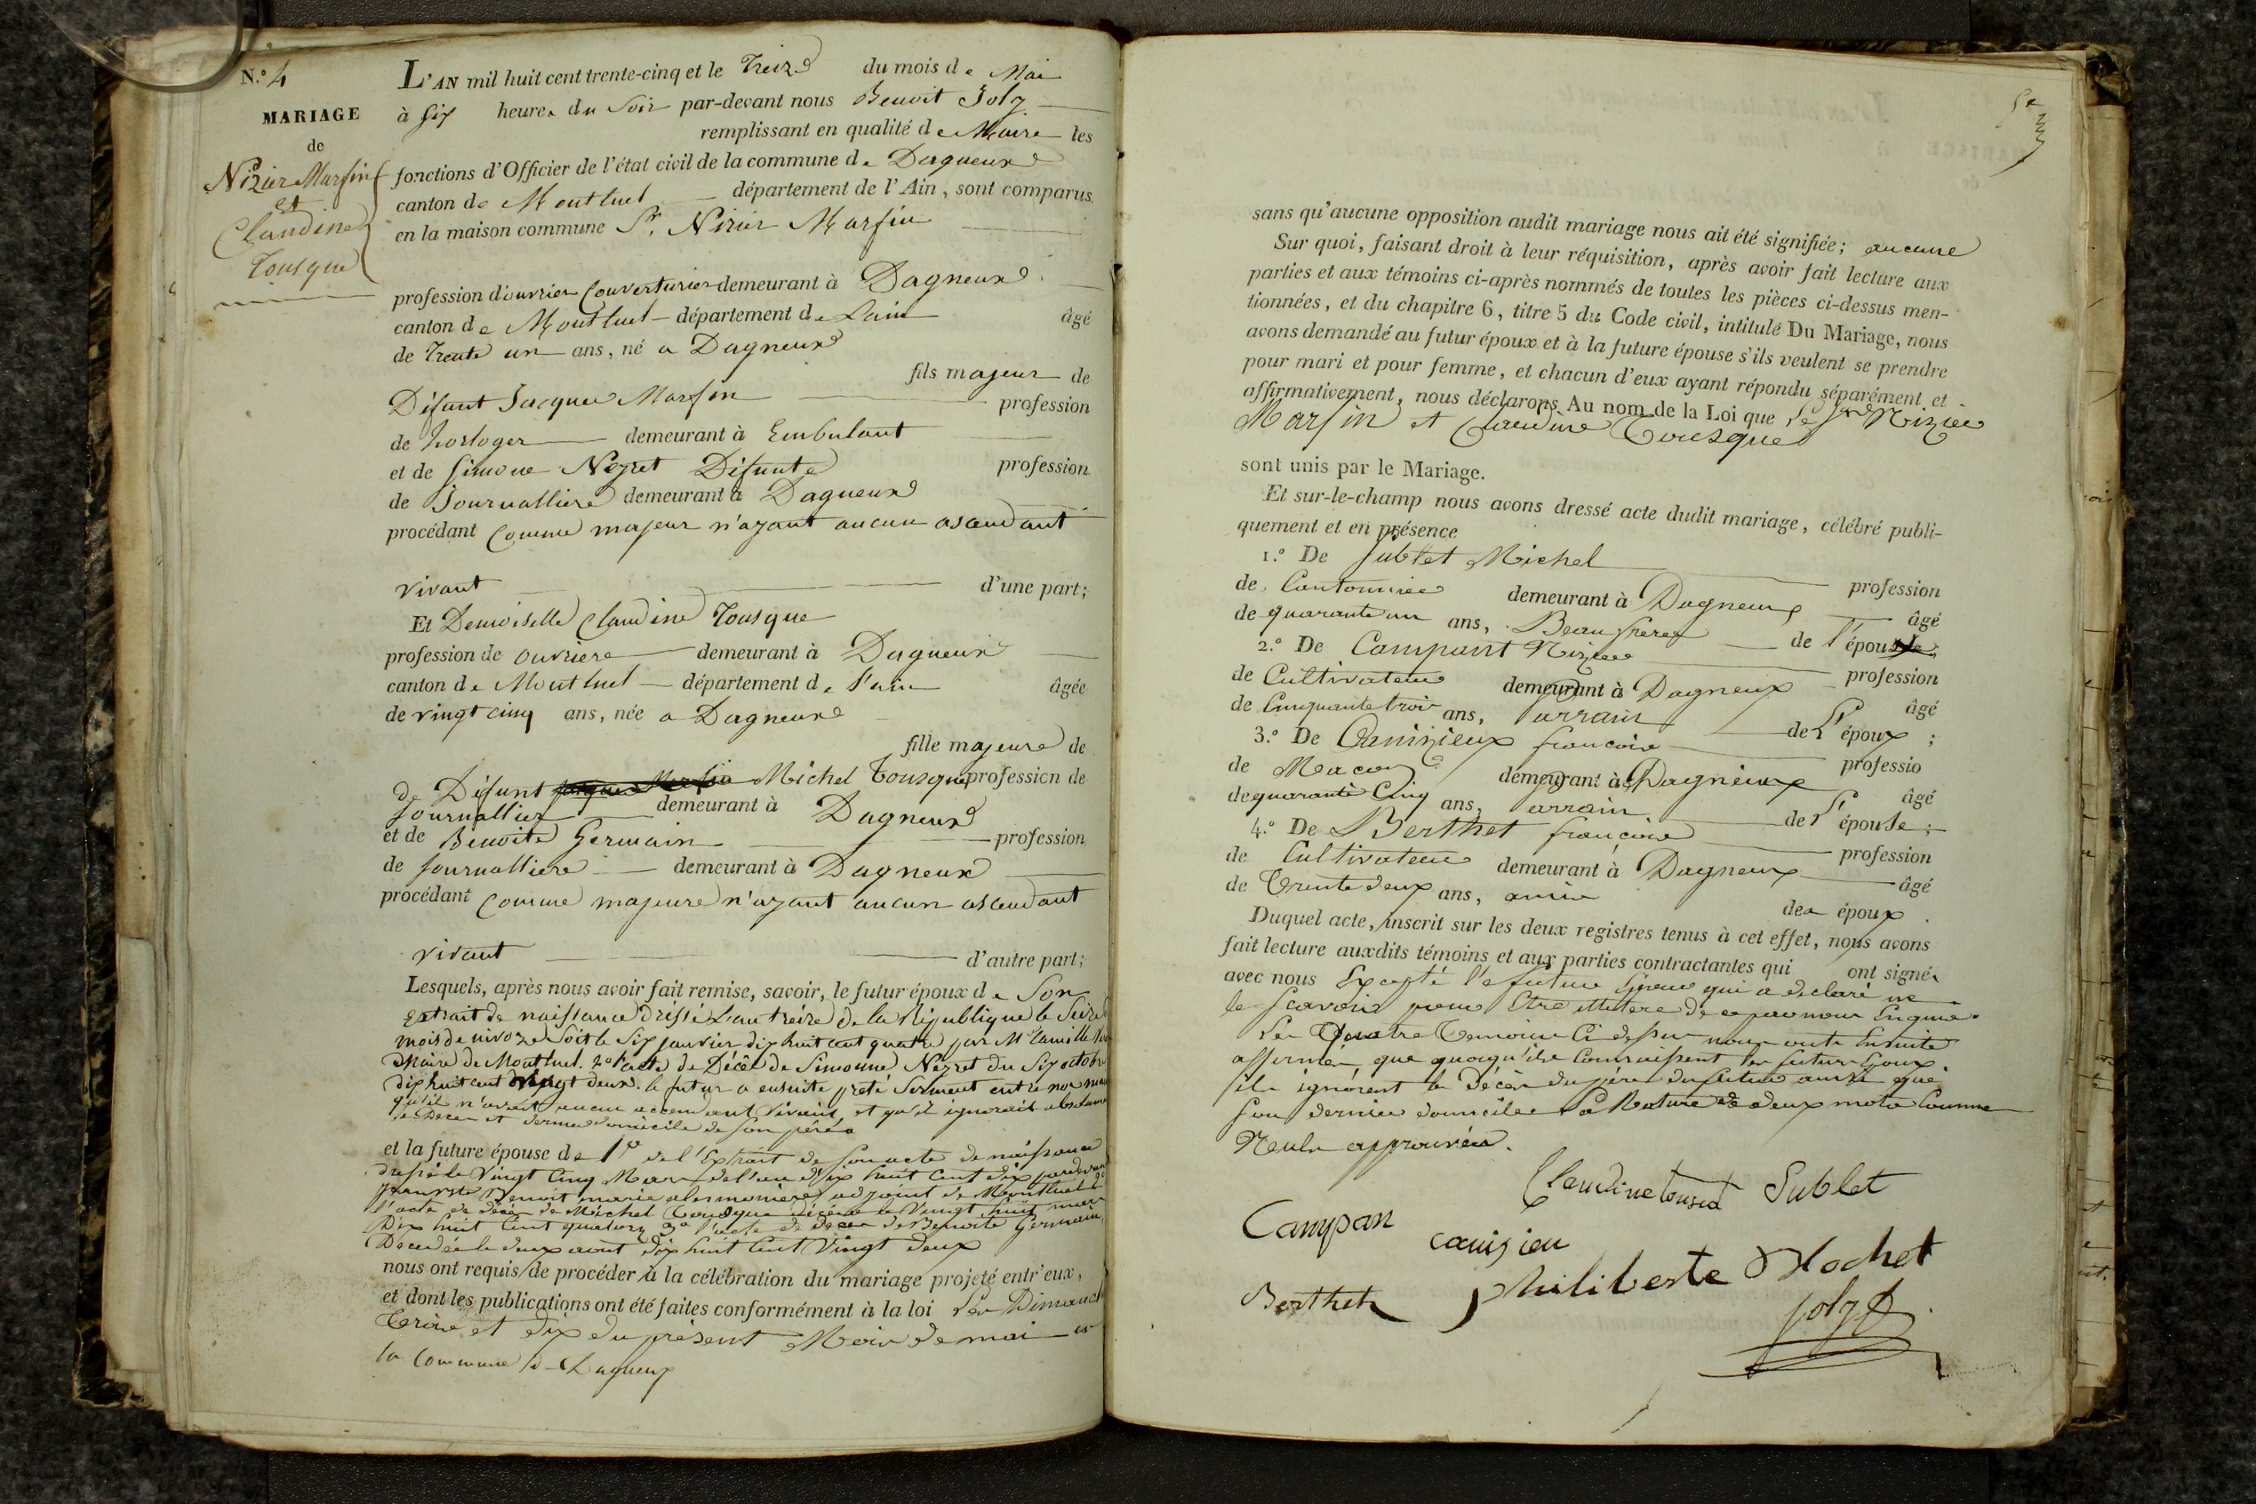 N.º 4
MARIAGE
de
Nizier Marfin
et
Claudine
Tousque
L'AN mil huit cent trente-cinq et le Treize du mois de Mai
à six heures du soir par-devant nous Benoit Joly
remplissant en qualité de Maire les
fonctions d'Officier de l'état civil de la commune de Dagneux
canton de Montluel département de l'Ain, sont comparus
en la maison commune Sr. Nizier Marfin
profession d'ouvrier Couverturier demeurant à Dagneux
canton de Montluel département de Lain âgé
de trente un ans, né a Dagneux
fils majeur de
Défunt Jacques Marfin profession
de horloger demeurant à Embulant
et de Simone Nezret Défunte profession
de Journallière demeurant à Dagneux
procédant Comme majeur n'ayant aucun ascendant
vivant d'une part;
Et Demoiselle Claudine Tousque
profession de ouvriere demeurant à Dagneux
canton de Montluel département de l'ain âgée
de vingt cinq ans, née a Dagneux
fille majeure de
de Défunt Michel Tousque profession de
Journallier demeurant à Dagneux
et de Benoite Germain profession
de journalliere demeurant à Dagneux
procédant comme majeure n'ayant aucun ascendant
vivant d'autre part;
Lesquels, après nous avoir fait remise, savoir, le futur époux de Son
extrait de naissance dressé L'an treize de la République le Seize
mois de nivoze soit le Six janvier dix huit cent quatre par Mr Camille
Maire de Montluel. 2º l'acte de Décès de Simonne Nezret du Six octobre
dix huit cent vingt deux. le futur a ensuite preté Serment entre nos mains
qu'il n'avait aucun ascendant vivant, et qu'il ignorait
le Décès et dernier domicile de son père
et la future épouse de 1º de l'Extrait de son acte de naissance
dressé le Vingt Cinq Mars de l'an dix huit Cent dix pardevant
Benoit marie adjoint de Montluel 2º
l'acte de décès de Michel Tousque décédé le Vingt huit mars
Dix huit Cent quatorze 3º l'acte de décès de Benoite Germain
Décédée le deux aout dix huit Cent Vingt deux
nous ont requis de procéder à la célébration du mariage projeté entr'eux,
et dont les publications ont été faites conformément à la loi Les Dimanches
Trois et dix du présent Mois de mai en
la Commune de Dagneux
5e
sans qu'aucune opposition audit mariage nous ait été signifiée; aucune
Sur quoi, faisant droit à leur réquisition, après avoir fait lecture aux
parties et aux témoins ci-après nommés de toutes les pièces ci-dessus men-
tionnées, et du chapitre 6, titre 5 du Code civil, intitulé Du Mariage, nous
avons demandé au futur époux et à la future épouse s'ils veulent se prendre
pour mari et pour femme, et chacun d'eux ayant répondu séparément et
affirmativement, nous déclarons Au nom de la Loi que le Sr Nizier
Marfin et Claudine Tousque
sont unis par le Mariage.
Et sur-le-champ nous avons dressé acte dudit mariage, célébré publi-
quement et en présence
1.º De Sublet Michel profession
de Cantonnier demeurant à Dagneux âgé
de quarante un ans, Beau frere de l'épouse;
2.º De Campant Nizier profession
de Cultivateur demeurant à Dagneux âgé
de Cinquante trois ans, parrain de L'époux;
3.º De Canizieux francoise professio
de Macon demeurant à Dagneux âgé
de quarante Cinq ans, parrain de L'épouse;
4.º De Berthet francoise profession
de Cultivateur demeurant à Dagneux âgé
de Trente deux ans, amis des époux.
Duquel acte, inscrit sur les deux registres tenus à cet effet, nous avons
fait lecture auxdits témoins et aux parties contractantes qui ont signés
avec nous Excepté le future Epoux qui a déclaré ne
le scavoir pour Etre illettere de ce par nous Enquis.
Les Quatre Temoins Ci dessus nous ont Ensuite
affirmés que quoiqu'ils Connaissent les futurs Epoux
ils ignorent le Décès du père du futur ainsi que
son dernier domicile. La Rature de deux mots Comme
Nuls approuvés.
Claudine tousca Sublet
Campan canizieu
Berthet philiberte Mochet
Joly